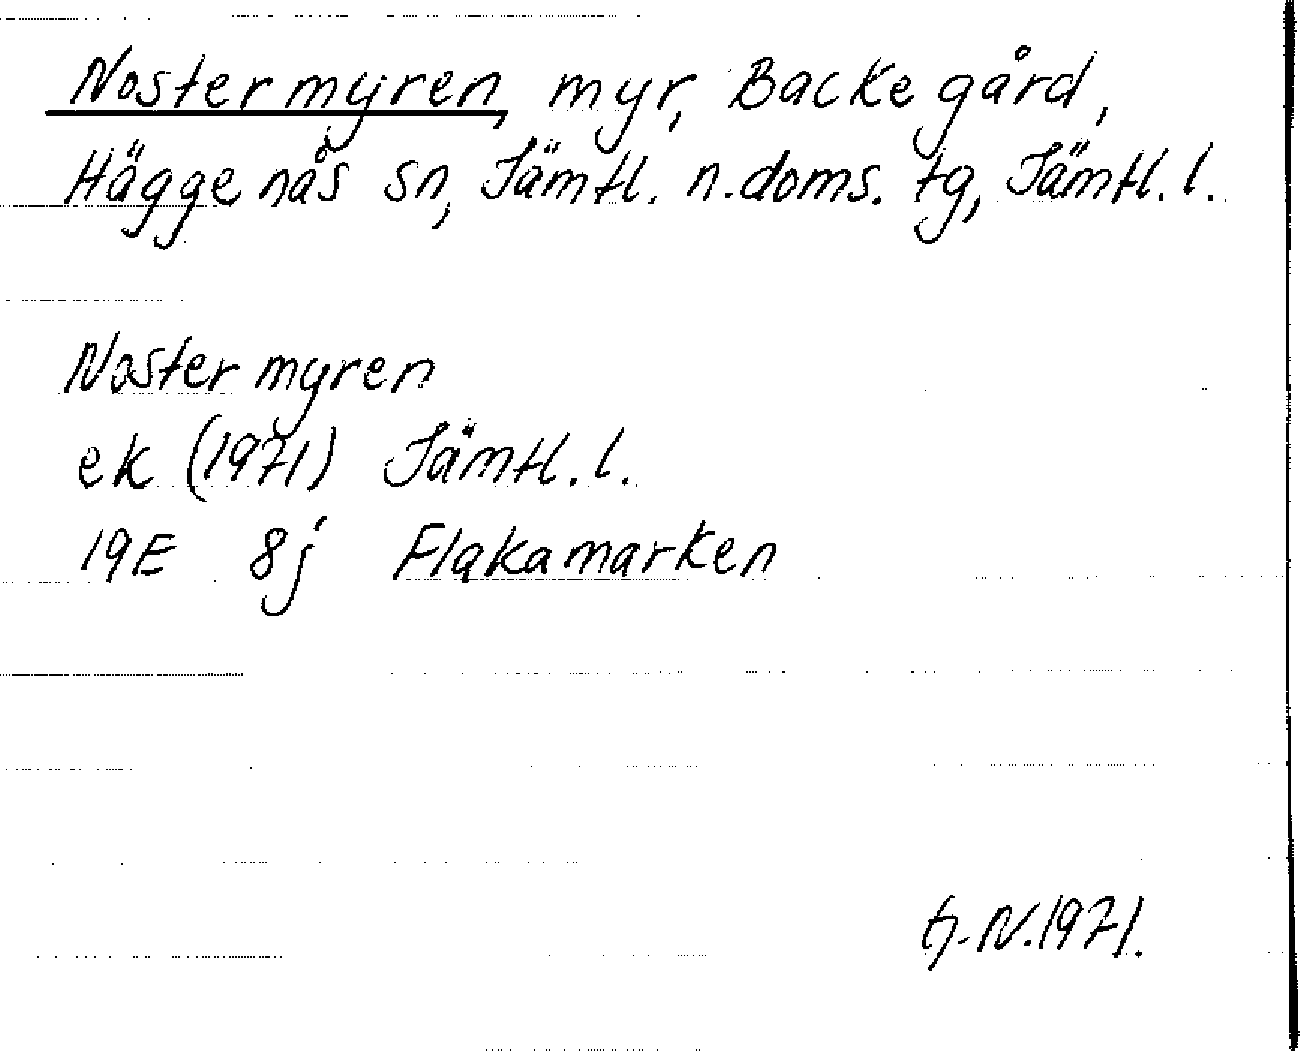 Nostermyren, myr, Backegård,
Häggenås sn, Jämtl. n. doms. tg, Jämtl. l.
Nostermyren
ek (1971) Jämtl. l.
19E 8j Flakamarken
G.N. 1971.